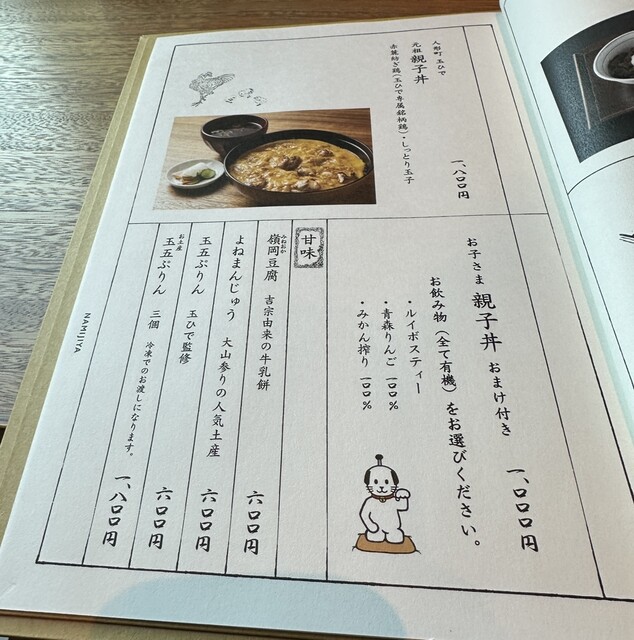 人形町 玉ひで
元祖 親子丼
赤麓紡ぎ鶏(玉ひで専属銘柄鶏)・しっとり玉子
一、八〇〇円
お子さま 親子丼 おまけ付き
一、〇〇〇円
お飲み物(全て有機)をお選びください。
・ルイボスティー
・青森りんご 一〇〇%
・みかん搾り 一〇〇%
甘味
嶺岡豆腐 吉宗由来の牛乳餅
みねおか
六〇〇円
よねまんじゅう 大山参りの人気土産
六〇〇円
玉五ぷりん 玉ひで監修
六〇〇円
お土産
玉五ぷりん 三個 冷凍でのお渡しになります。
一、八〇〇円
NAMIJIYA